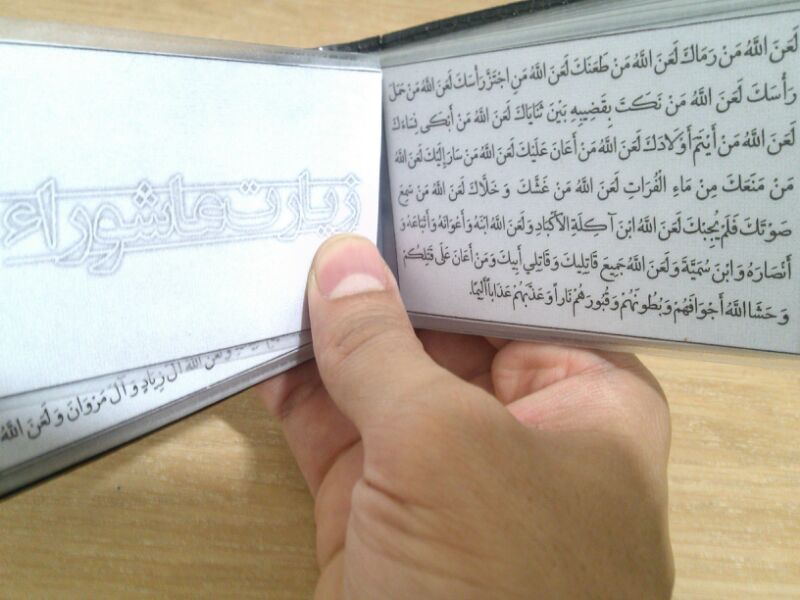 لَعَنَ اللهُ مَنْ رَمَاكَ لَعَنَ اللهُ مَنْ طَعَنَكَ لَعَنَ اللهُ مَنِ اجْتَزَّ رَأْسَكَ لَعَنَ اللهُ مَنْ حَمَلَ
رَأْسَكَ لَعَنَ اللهُ مَنْ نَكَتَ بِقَضِيبِهِ بَيْنَ ثَنَايَاكَ لَعَنَ اللهُ مَنْ أَبْكَى نِسَاءَكَ
لَعَنَ اللهُ مَنْ أَيْتَمَ أَوْلَادَكَ لَعَنَ اللهُ مَنْ أَعَانَ عَلَيْكَ لَعَنَ اللهُ مَنْ سَارَ إِلَيْكَ لَعَنَ اللهُ
مَنْ مَنَعَكَ مِنْ مَاءِ الْفُرَاتِ لَعَنَ اللهُ مَنْ غَشَّكَ وَ خَلَّاكَ لَعَنَ اللهُ مَنْ سَمِعَ
صَوْتَكَ فَلَمْ يُجِبْكَ لَعَنَ اللهُ ابْنَ آكِلَةِ الْأَكْبَادِ وَ لَعَنَ اللهُ ابْنَهُ وَ أَعْوَانَهُ وَ أَتْبَاعَهُ وَ
أَنْصَارَهُ وَ ابْنَ سُمَيَّةَ وَ لَعَنَ اللهُ جَمِيعَ قَاتِلِيكَ وَ قَاتِلِي أَبِيكَ وَ مَنْ أَعَانَ عَلَى قَتْلِكُمْ
وَ حَشَا اللهُ أَجْوَافَهُمْ وَ بُطُونَهُمْ وَ قُبُورَهُمْ نَاراً وَ عَذَّبَهُمْ عَذَاباً أَلِيمًا.
زیارت عاشوراء
وَ لَعَنَ اللهُ آلَ زِيَادٍ وَ آلَ مَرْوَانَ وَ لَعَنَ اللهُ